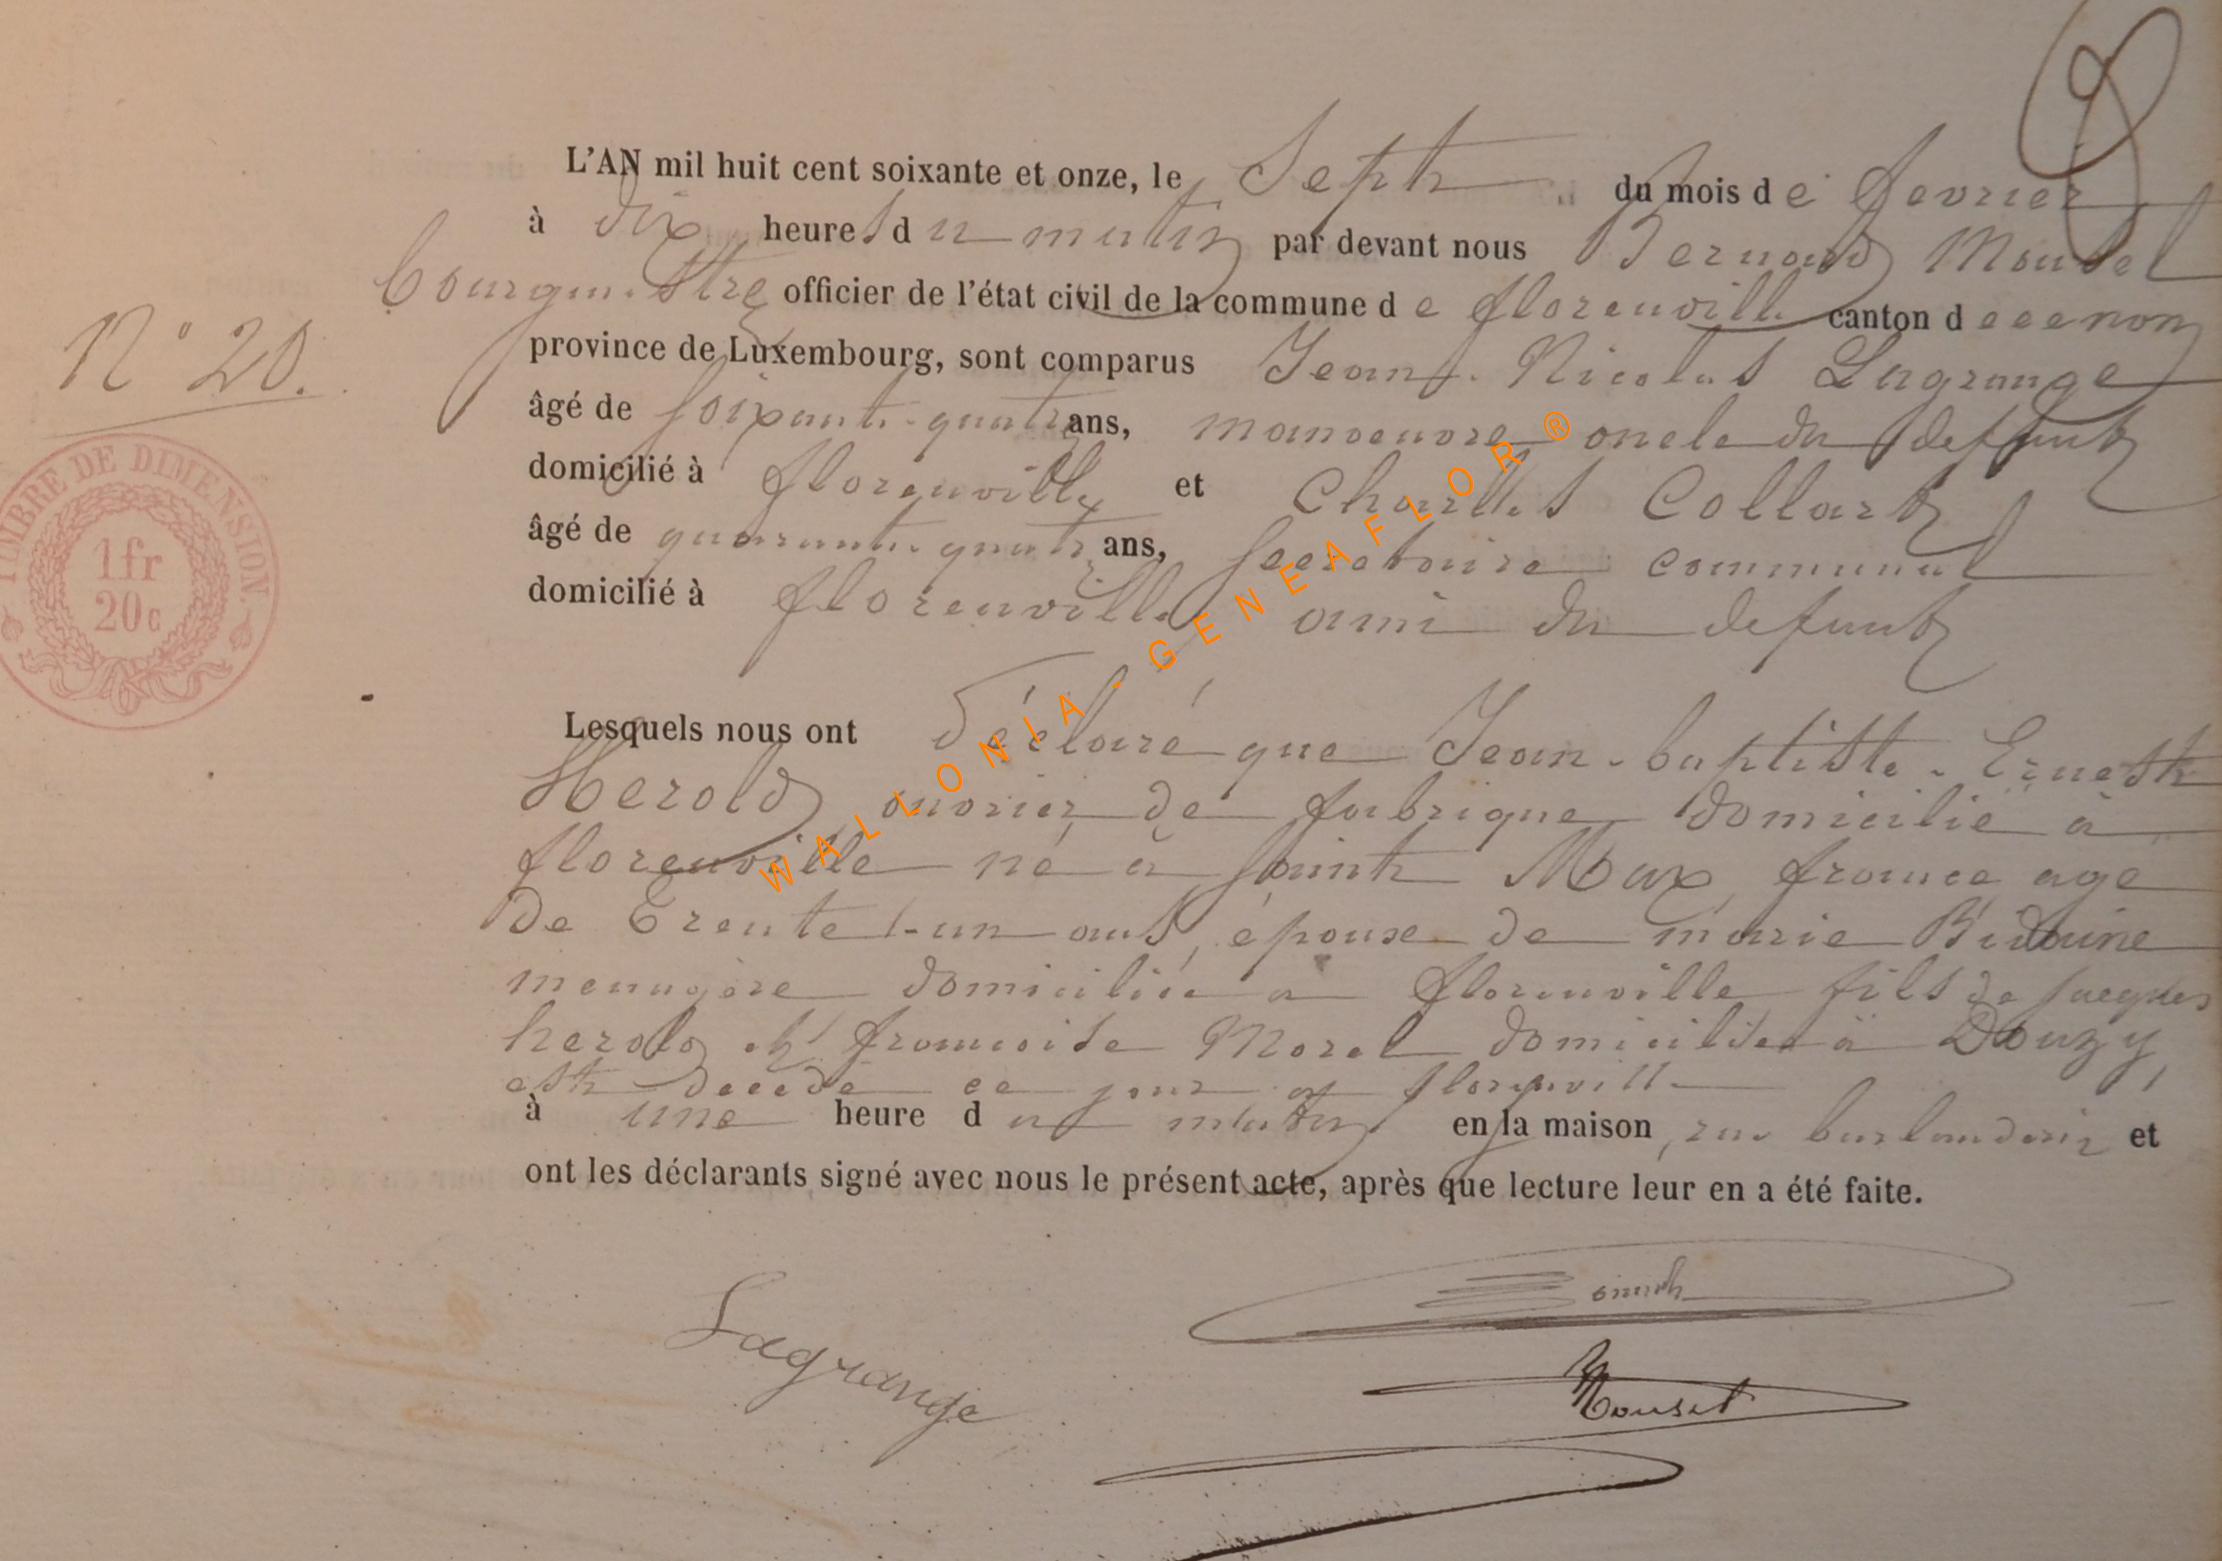 L'AN mil huit cent soixante et onze, le Sept du mois de fevrier
à dix heures du matin par devant nous Bernard Mousel
bourgmestre officier de l'état civil de la commune de florenville canton de
N° 20.
province de Luxembourg, sont comparus Jean Nicolas Lagrange
âgé de soixante-quatre ans, manoeuvre oncle du defunt
domicilié à florenville et Charles Collart
âgé de quarante quatre ans, secretaire communal
domicilié à florenville ami du defunt
TIMBRE DE DIMENSION.
1 fr
20 c
Lesquels nous ont déclaré que Jean-baptiste-Ernest
Herold ouvrier de fabrique domicilié à
florenville né à Saint Max france age
de trente-un ans, époux de marie
menagère domiciliée a florenville fils de jacques
herold et francoise Morel domiciliés à Douzy,
est decedé ce jour a florenville
à une heure du matin en la maison, rue et
ont les déclarants signé avec nous le présent acte, après que lecture leur en a été faite.
Lagrange
Mousel
WALLONIA-GENEAFLOR®